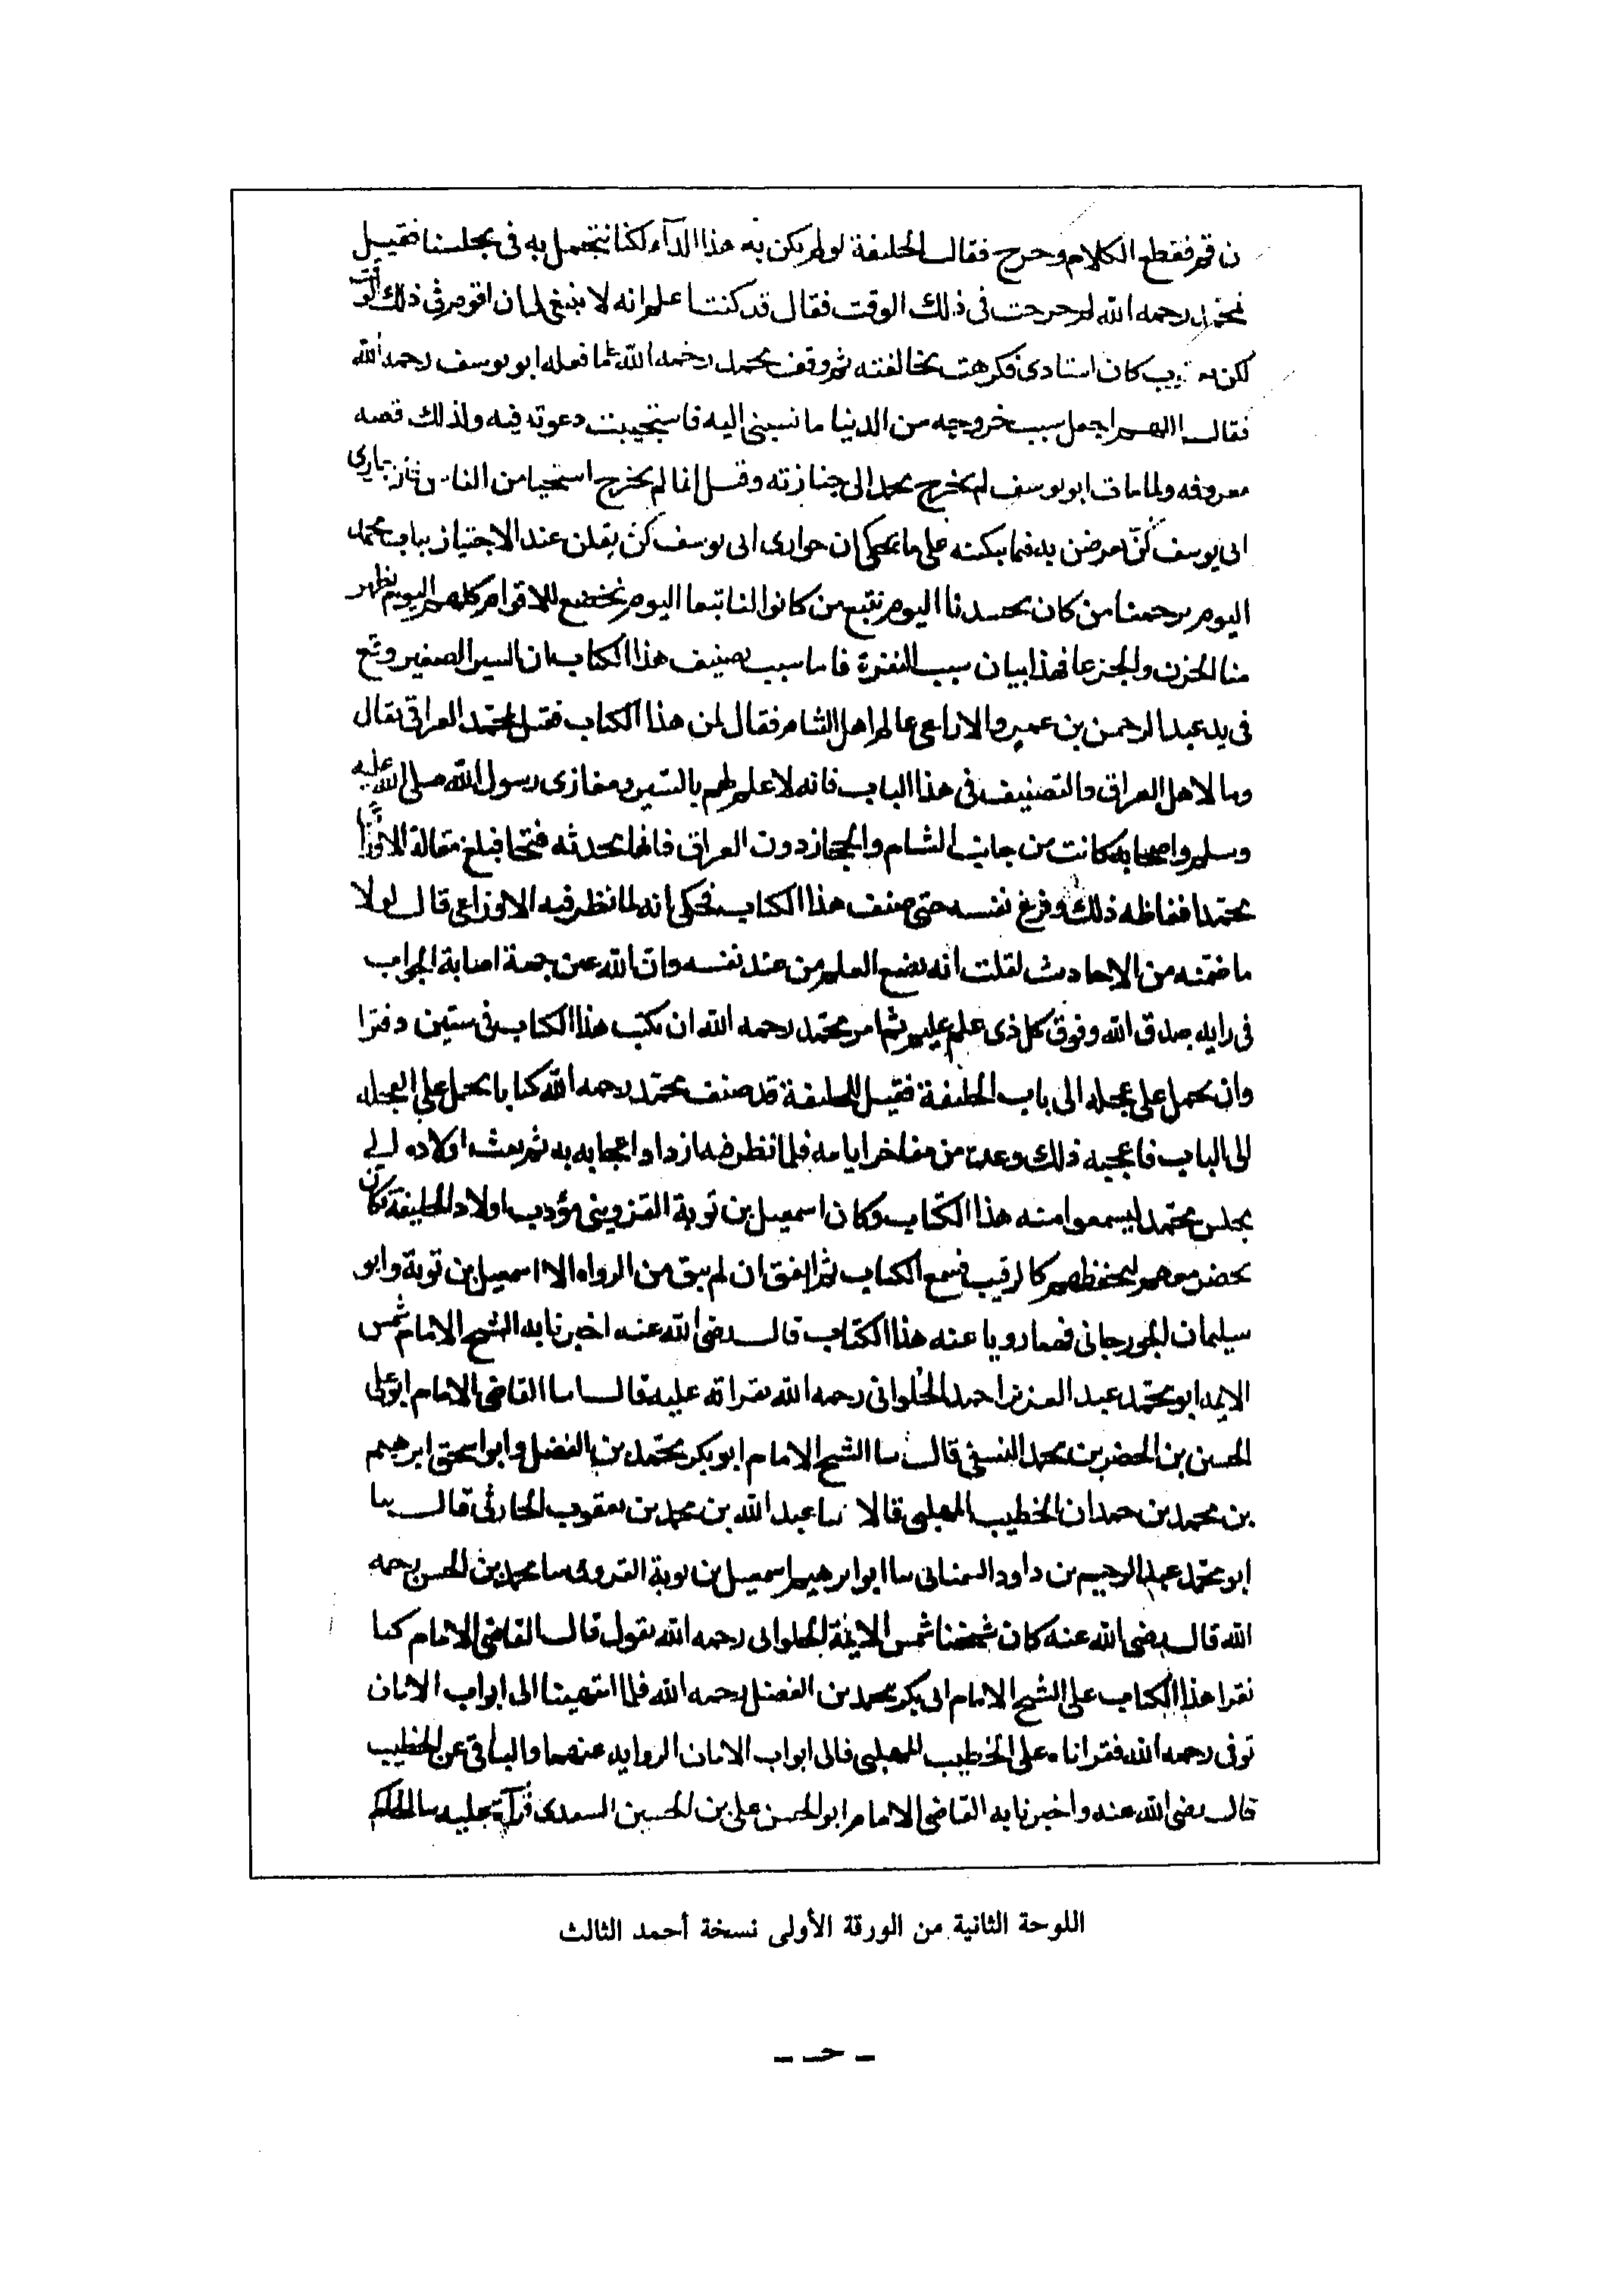 ن قم فقطع الكلام وخرج فقال الخليفة لو لم يكن به هذا الداء لكنا نتجمل به فى مجلسنا فقيل
لمحمد رحمه الله لم خرجت فى ذلك الوقت فقال قد كنت اعلم انه لا ينبغى لى ان اقوم فى ذلك الوقت
لكن كان استادى فكرهت مخالفته ثم وقف محمد رحمه الله على ما فعله ابو يوسف رحمه الله
فقال اللهم اجعل سبب خروجه من الدنيا ما نسبنى اليه فاستجيبت دعوته فيه ولذلك قصه
معروفه ولما مات ابو يوسف لم يخرج محمد الى جنازته وقيل انما لم يخرج استحيا من الناس جوارى
ابى يوسف كن يعرضن به فيما يبكينه على ما يحكى ان جوارى ابى يوسف كن يقلن عند الاجتياز بباب محمد
اليوم يرحمنا من كان يحسدنا اليوم نتبع من كانوا لنا تبعا اليوم نخضع للاقوام كلهم اليوم نظهر
منا الحزن والجزعا فهذا بيان سبب النفرة فاما سبب تصنيف هذا الكتاب ان السير الصغير وقع
فى يد عبد الرحمن بن عمرو الاوزاعى عالم اهل الشام فقال لمن هذا الكتاب فقيل لمحمد العراقى فقال
وما لاهل العراق والتصنيف فى هذا الباب فانه لا علم لهم بالسير ومغازى رسول الله صلى الله عليه
وسلم واصحابه كانت من جانب الشام والحجاز دون العراق فانها محدثه فتحا فبلغ مقالة الاوزاعى
محمدا فغاظه ذلك وفرغ نفسه حتى صنف هذا الكتاب فحكى انه لما نظر فيه الاوزاعى قال لولا
ما ضمنه من الاحاديث لقلت انه يضع العلم من عند نفسه وان الله عين جهة اصابة الجواب
فى رايه صدق الله وفوق كل ذى علم عليم ثم امر محمد رحمه الله ان يكتب هذا الكتاب فى ستين دفترا
وان يحمل على عجله الى باب الخليفة فقيل للخليفة قد صنف محمد رحمه الله كتابا يحمل على العجله
الى الباب فاعجبه ذلك وعده من مفاخر ايامه فلما نظر فيه ازداد اعجابه به ثم بعث اولاده الى
مجلس محمد ليسمعوا منه هذا الكتاب وكان اسمعيل بن توبة القزوينى مؤدب اولاد الخليفة فكان
يحضر معهم ليحفظهم كالرقيب فسمع الكتاب ثم اتفق ان لم يبق من الرواه الا اسمعيل بن توبة وابو
سليمان الجورجانى فهما رويا عنه هذا الكتاب قال رضى الله عنه اخبرنا به الشيخ الامام شمس
الايمه ابو محمد عبد العزيز احمد الحلوانى رحمه الله بقراته عليه قال اسا القاضى الامام ابو على
الحسن بن الخضر بن محمد النسفى قال سا الشيخ الامام ابو بكر محمد بن الفضل وابو اسحق ابرهيم
بن محمد بن حمدان الخطيب المهلبى قالا سا عبد الله بن محمد بن يعقوب الحارثى قال سا
ابو محمد عبد الرحيم بن داود السمنانى سا ابو ابرهيم اسمعيل بن توبة القزوينى سا محمد بن الحسن رحمه
الله قال رضى الله عنه كان شيخنا شمس الايمة الحلوانى رحمه الله يقول قال القاضى الامام كنا
نقرا هذا الكتاب على الشيخ الامام ابى بكر محمد بن الفضل رحمه الله فلما انتهينا الى ابواب الامان
توفى رحمه الله فقراناه على الخطيب المهلبى فالى ابواب الامان الروايه عنهما والباقى عن الخطيب
قال رضى الله عنه واخبرنا به القاضى الامام ابو الحسن على بن الحسين السعدى قراة عليه سا الحاكم
اللوحة الثانية من الورقة الأولى نسخة أحمد الثالث
– حـ –